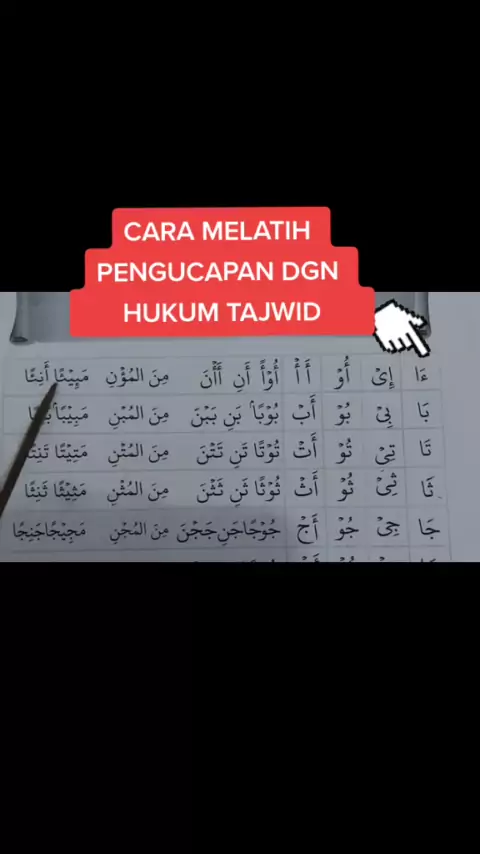 CARA MELATIH
PENGUCAPAN DGN
HUKUM TAJWID
ءَا إِىْ أُو أَأْ أُوْأً أَنِ أَأْنَ مِنَ الْمُؤْنِ
بَا بِىْ بُوْ أَبْ بُوْبًا بَنِ بَبْنَ مِنَ الْمُبْنِ
تَا تِىْ تُوْ أَتْ تُوْتًا تَنِ تَتْنَ مِنَ الْمُتْنِ مَتِيْتًا
ثَا ثِىْ ثُوْ أَثْ ثُوْثًا ثَنِ ثَثْنَ مِنَ الْمُثْنِ مَثِيْثًا ثَنِثًا
جَا جِىْ جُوْ أَجْ جُوْجًا جَنِ جَجْنَ مِنَ الْمُجْنِ مَجِيْجًا جَنِجًا